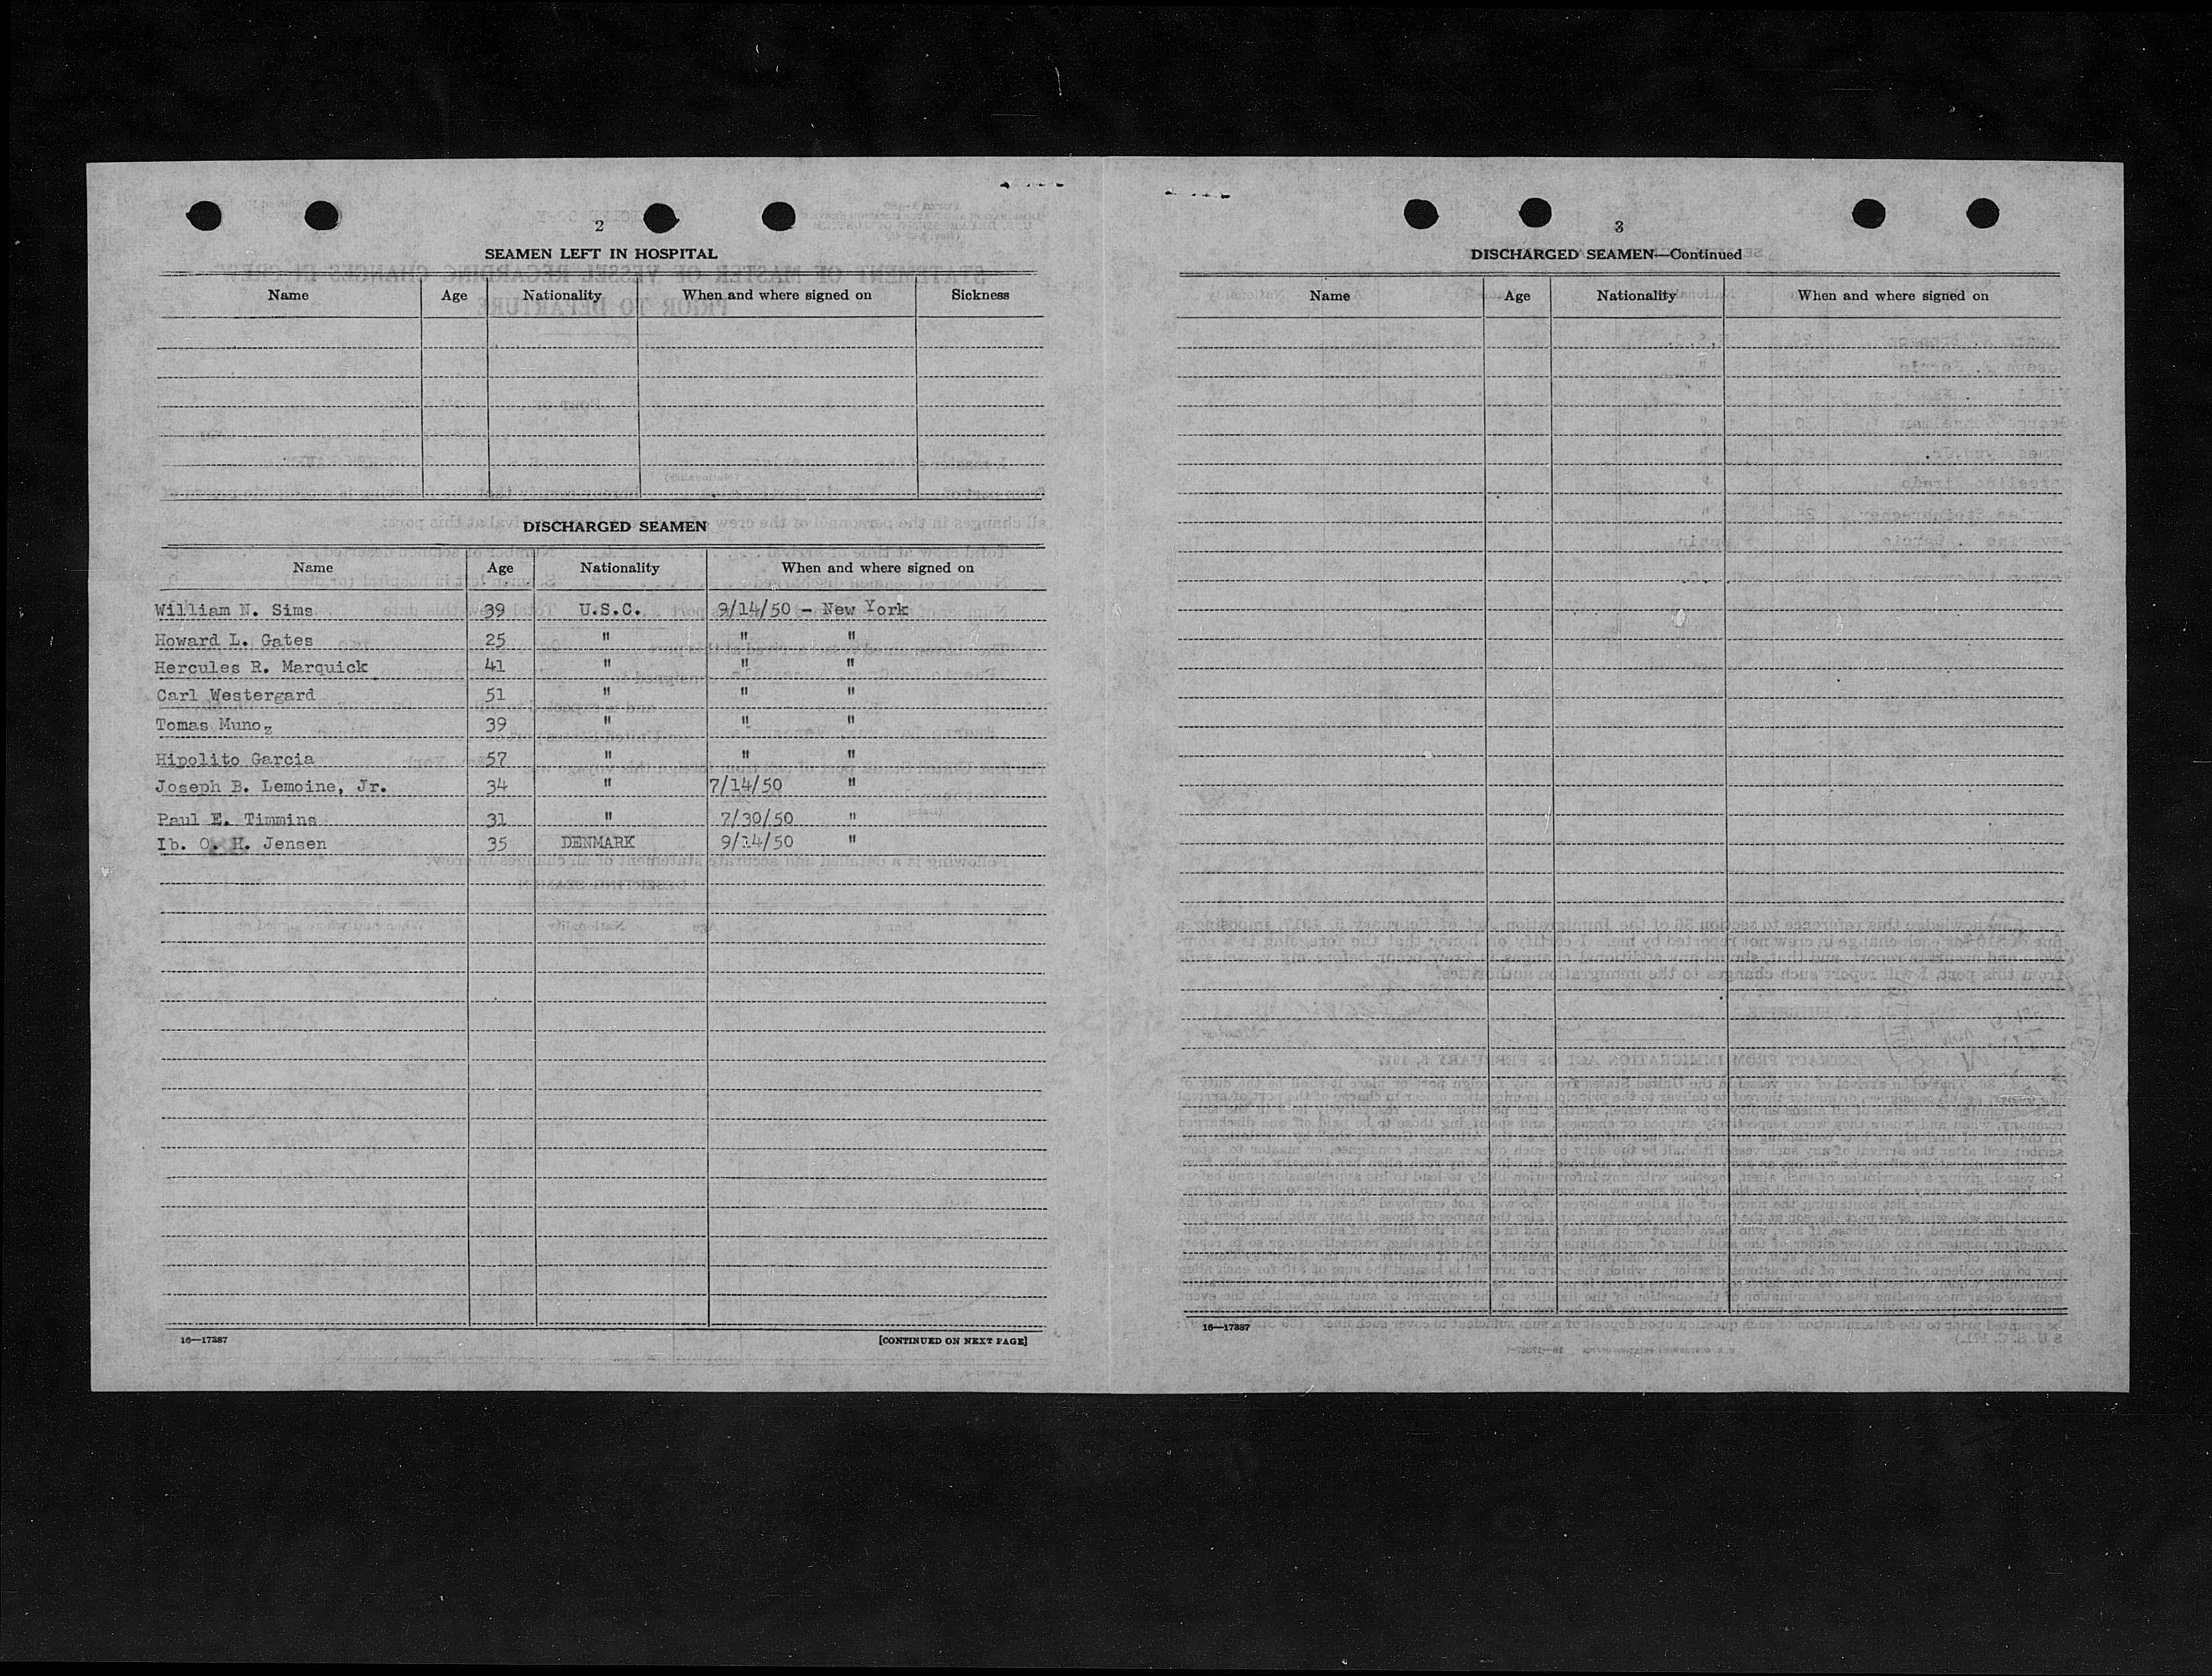 2
SEAMEN LEFT IN HOSPITAL
Name Age Nationality When and where signed on Sickness
DISCHARGED SEAMEN
Name Age Nationality When and where signed on
William N. Sims 39 U.S.C. 9/14/50 - New York
Howard L. Gates 25 " " "
Hercules R. Marquick 41 " " "
Carl Westergard 51 " " "
Tomas Munoz 39 " " "
Hipolito Garcia 57 " " "
Joseph B. Lemoine, Jr. 34 " 7/14/50 "
Paul E. Timmins 31 " 7/30/50 "
Ib. O. H. Jensen 35 DENMARK 9/14/50 "
16—17387
[CONTINUED ON NEXT PAGE]
3
DISCHARGED SEAMEN—Continued
Name Age Nationality When and where signed on
16—17387